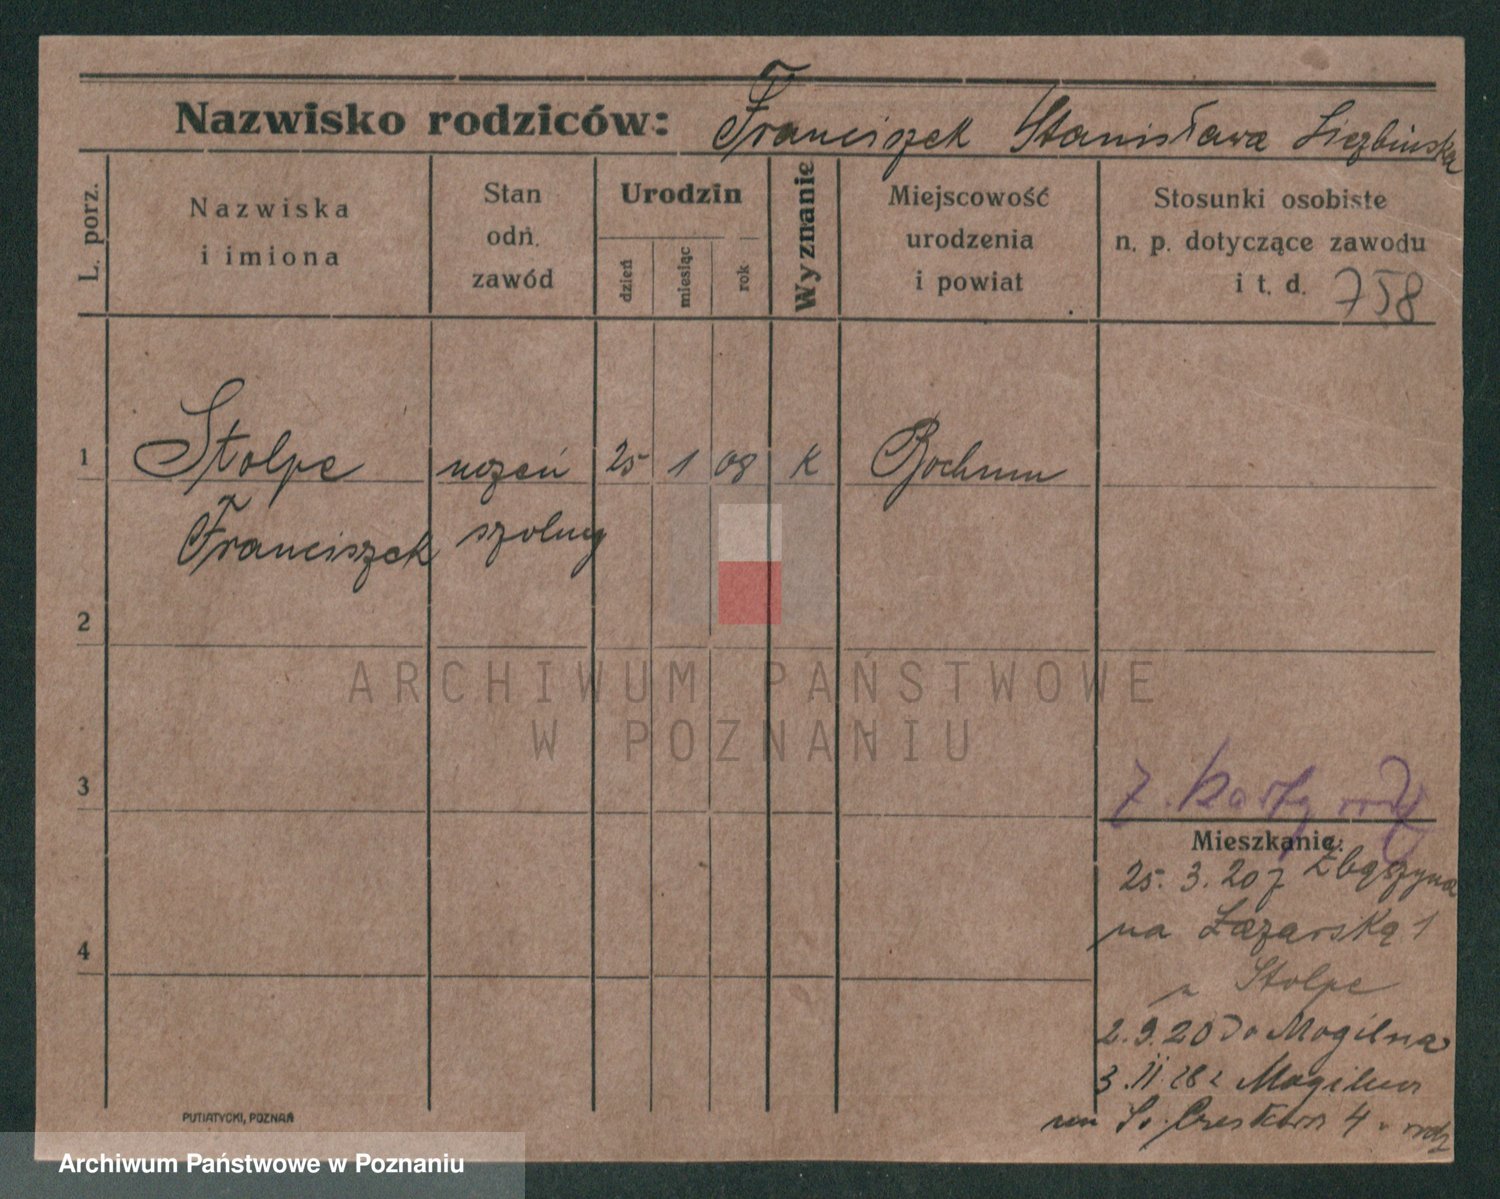 Nazwisko rodziców: Franciszek Stanisława Liczbińska
L. porz.
Nazwiska
i imiona
Stan
odn.
zawód
Urodzin
dzień
miesiąc
rok
Wyznanie
Miejscowość
urodzenia
i powiat
Stosunki osobiste
n. p. dotyczące zawodu
i t. d. 758
1 Stolpe uczeń 25 1 08 K Bochum
Franciszek szolny
2
3
4
ARCHIWUM PAŃSTWOWE
W POZNANIU
z. karty
Mieszkanie:
25. 3. 20 z Zbąszyna
na Łazarską 1
u Stolpe
2. 9. 20 do Mogilna
3. II. 28 z Mogilna
4
PUTIATYCKI, POZNAŃ
Archiwum Państwowe w Poznaniu